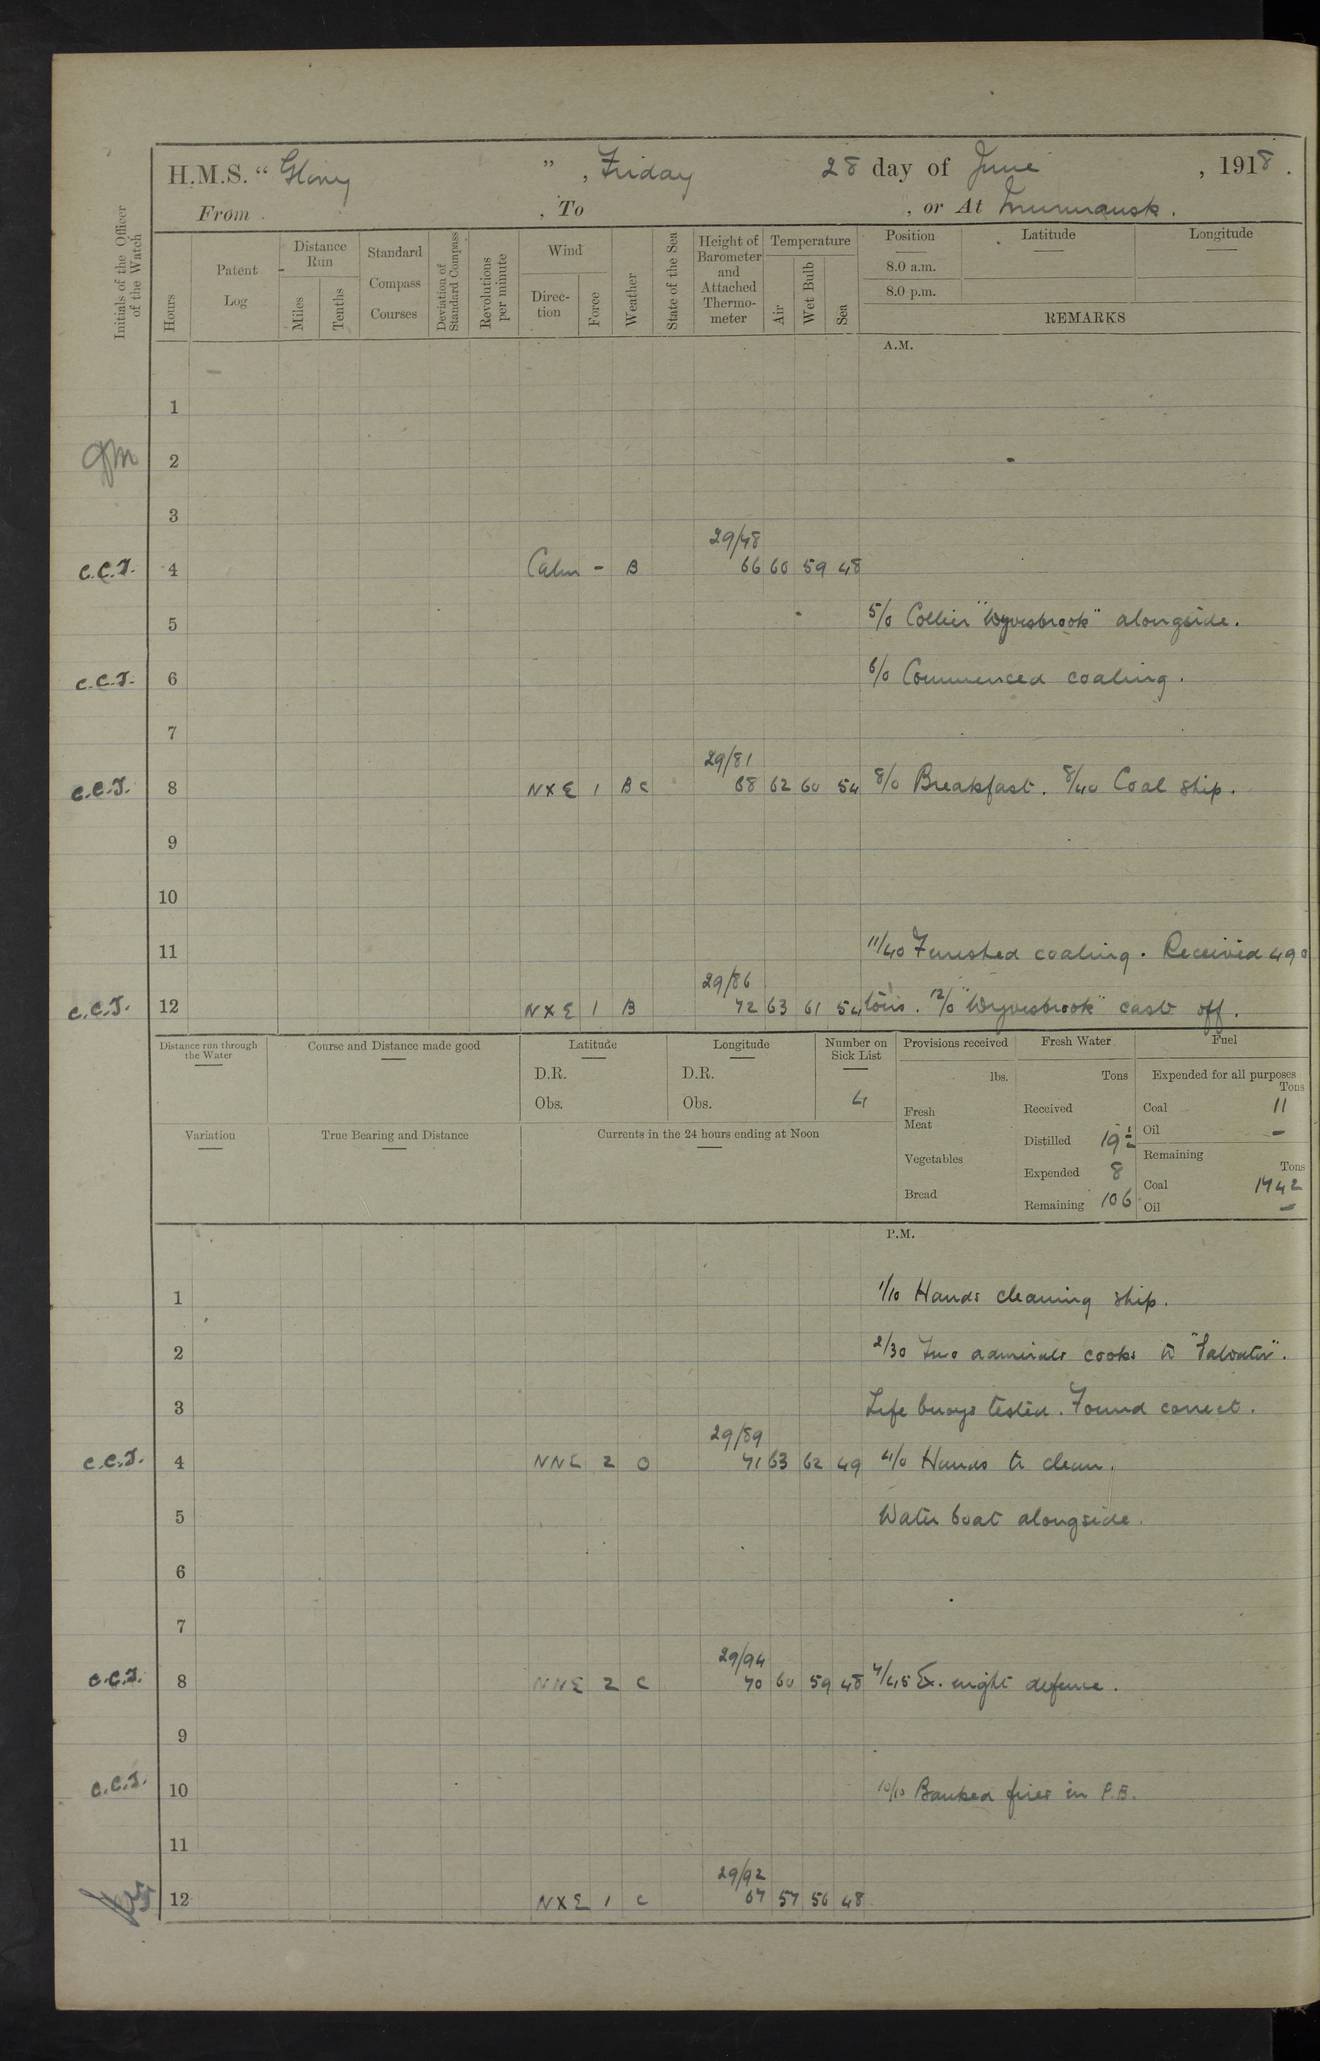 H.M.S. "Glory", Friday 28 day of June, 1918.
From , To , or At Murmansk.
Initials of the Officer of the Watch
Hours
Patent Log
Distance Run
Miles
Tenths
Standard Compass Courses
Deviation of Standard Compass
Revolutions per minute
Wind
Direction
Force
Weather
State of the Sea
Height of Barometer and Attached Thermometer
Temperature
Air
Wet Bulb
Sea
Position
Latitude
Longitude
8.0 a.m.
8.0 p.m.
REMARKS
A.M.
1
2
3
29/48
C.C.T. 4 Calm - B 66 60 59 48
5 5/0 Collier "Wyvisbrook" alongside.
C.C.T. 6 6/0 Commenced coaling.
7
29/81
C.C.T. 8 NXE 1 BC 68 62 60 54 8/0 Breakfast. 8/40 Coal ship.
9
10
11 11/40 Finished coaling. Received 490
29/86
C.C.T. 12 NXE 1 B 72 63 61 54 tons. 12/0 "Wyvisbrook" cast off.
Distance run through the Water
Course and Distance made good
Latitude
D.R.
Obs.
Longitude
D.R.
Obs.
Number on Sick List
4
Variation
True Bearing and Distance
Currents in the 24 hours ending at Noon
Provisions received
lbs.
Fresh Meat
Vegetables
Bread
Fresh Water
Tons
Received
Distilled 19½
Expended 8
Remaining 106
Fuel
Expended for all purposes
Tons
Coal 11
Oil -
Remaining
Tons
Coal 1742
Oil -
P.M.
1 1/10 Hands cleaning ship.
2 2/30 Two admirals cooks to "Salvator".
3 Life buoys tested. Found correct.
29/89
C.C.T. 4 NNE 2 O 71 63 62 49 4/0 Hands to clean.
5 Water boat alongside.
6
7
29/94
C.C.T. 8 NNE 2 C 70 60 59 48 7/45 Ex. night defence.
9
C.C.T. 10 10/10 Banked fires in P.B.
11
29/92
12 NXE 1 C 67 57 56 48